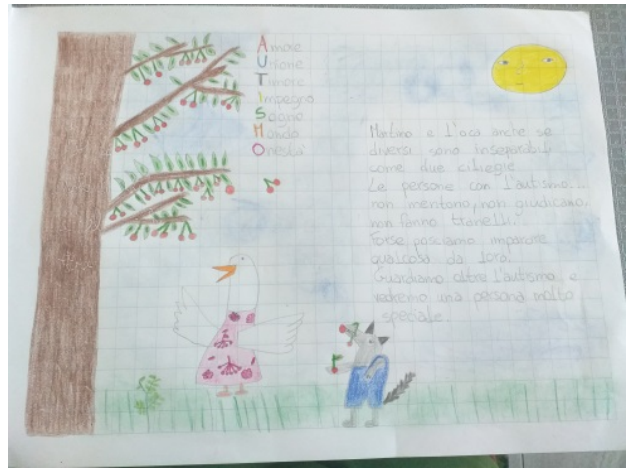 Amore
Unione
Timore
Impegno
Sogno
Mondo
Onestà
Martino e l'oca anche se
diversi sono inseparabili
come due ciliegie.
Le persone con l'autismo...
non mentono, non giudicano,
non fanno tranelli.
Forse possiamo imparare
qualcosa da loro.
Guardiamo oltre l'autismo e
vedremo una persona molto
speciale.